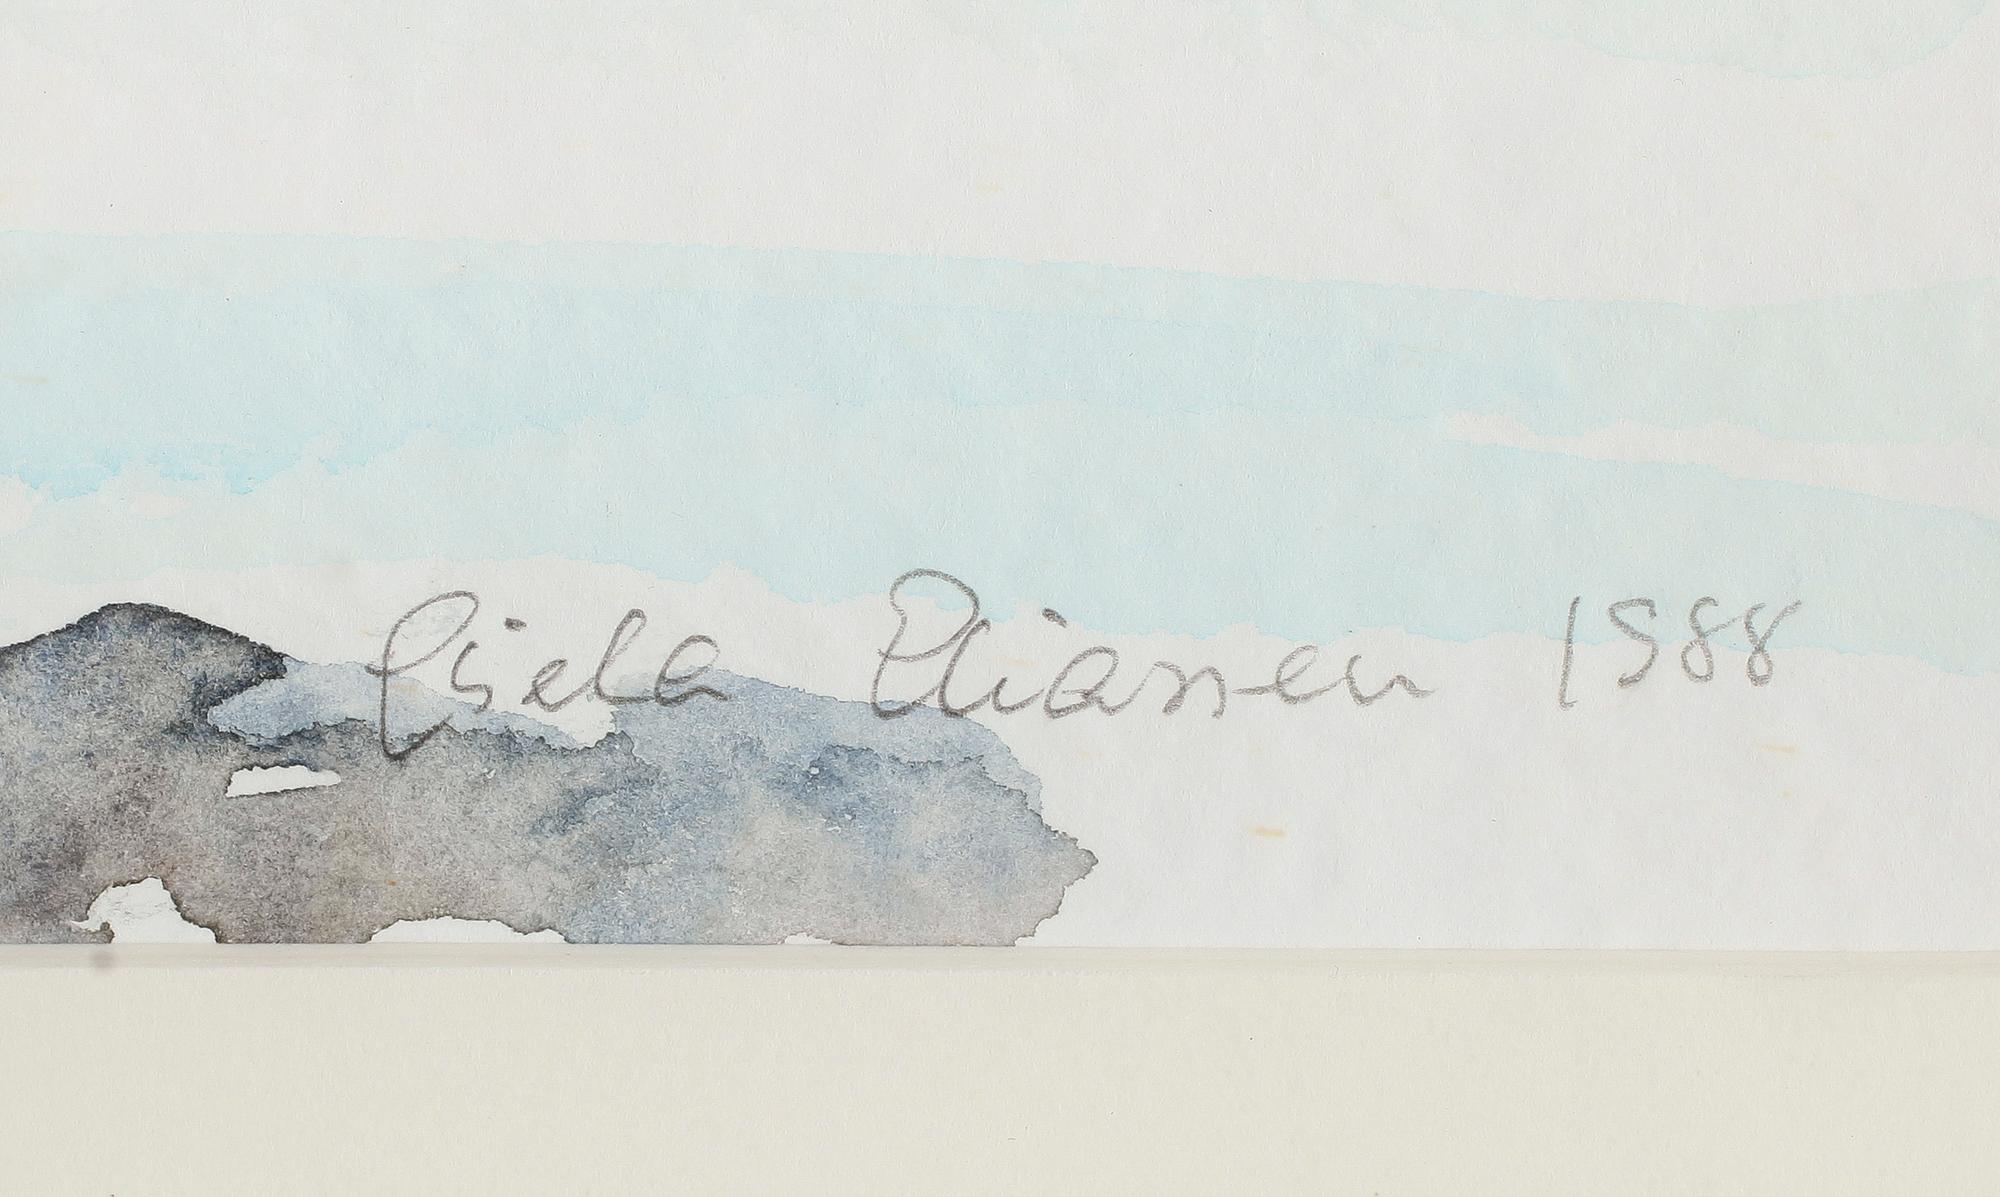 Gisela Eliassen 1988